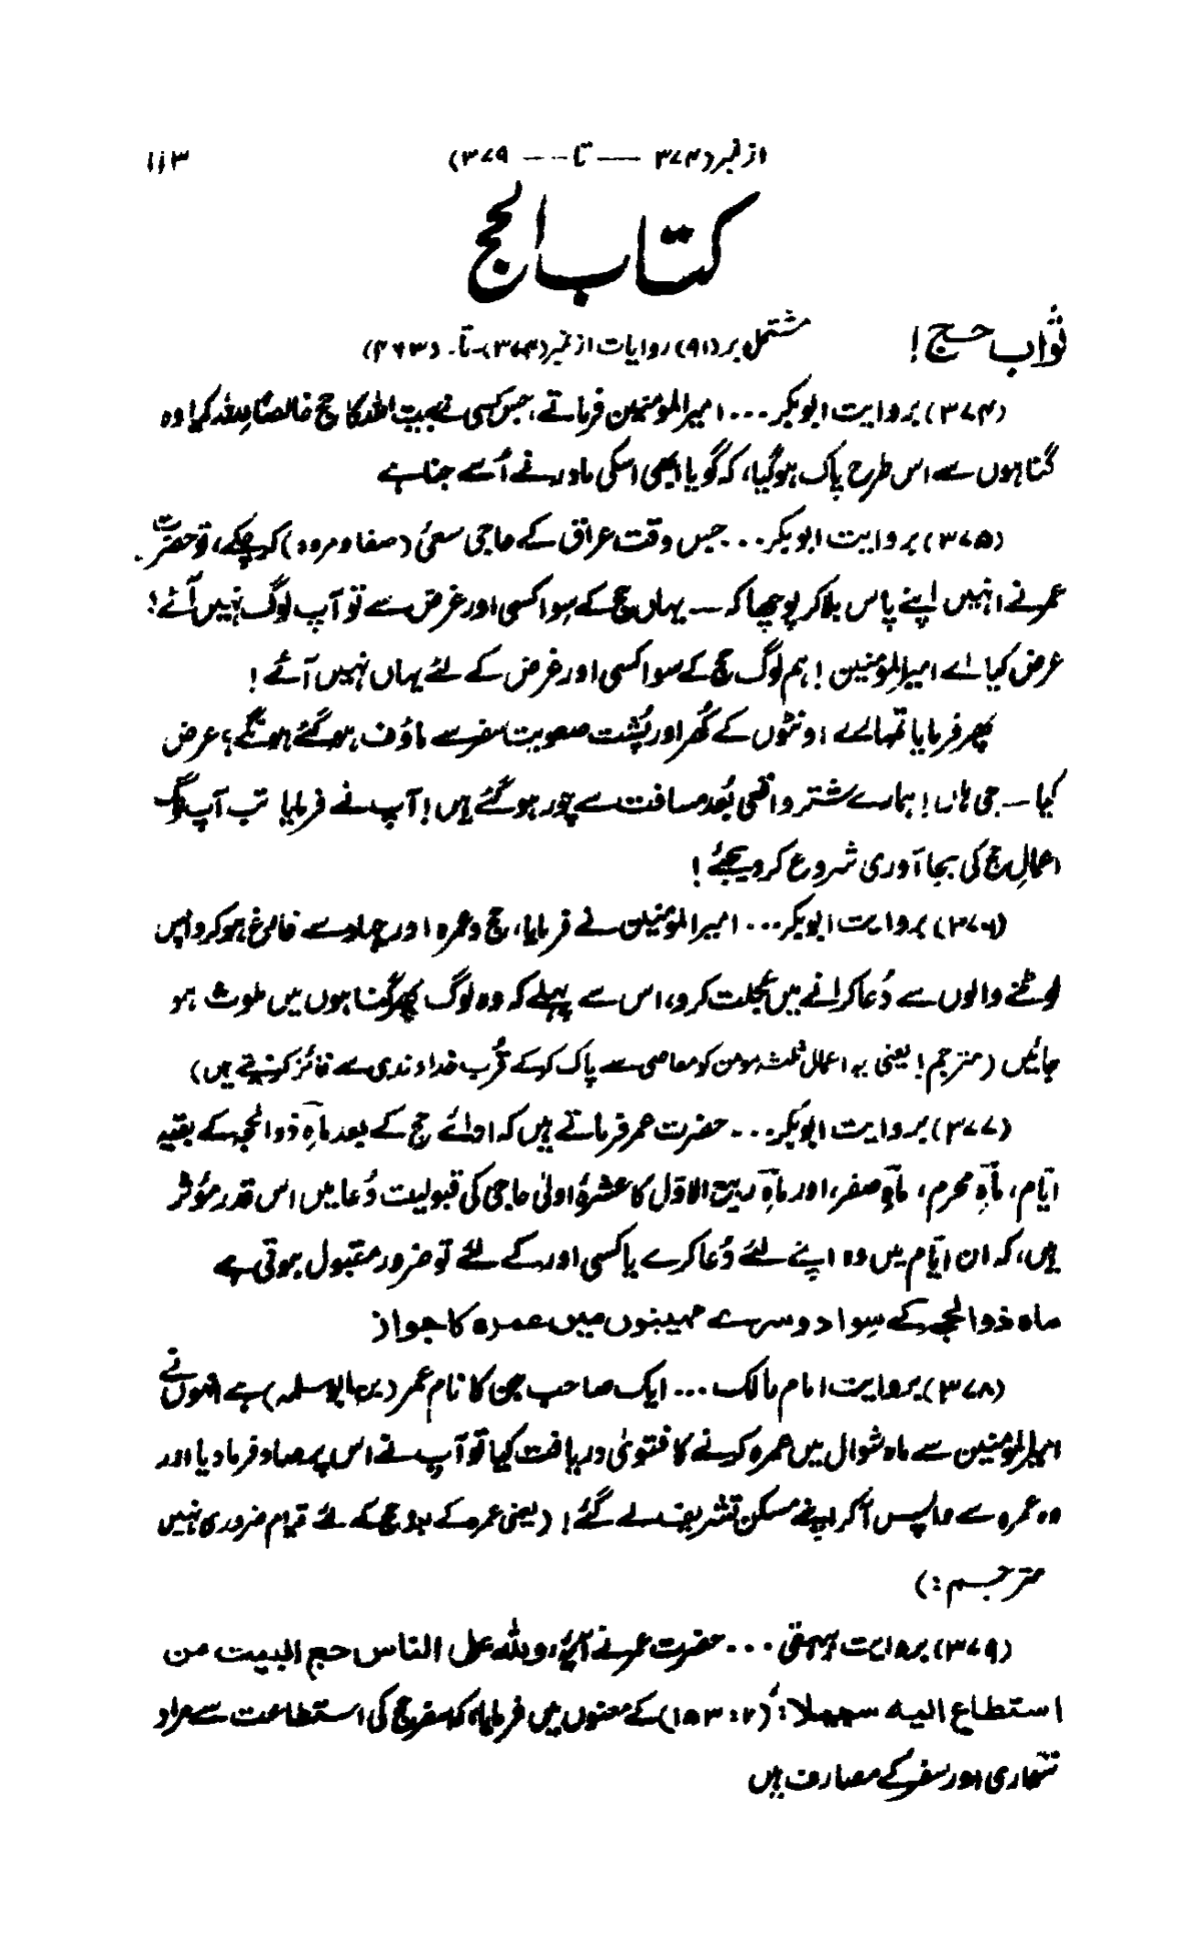 از نمبر (۳۷۴ — تا -- ۳۷۹) ۱۱۳
کتاب الحج
ثواب حج! مشتمل بر (۹۱) روایات از نمبر (۳۷۴)-تا- (۴۶۳)
(۳۷۴) بروایت ابوبکر... امیرالمؤمنین فرماتے، جس کسی نے بیت اللہ کا حج خالصاً للہ کیا وہ
گناہوں سے اس طرح پاک ہوگیا، کہ گویا ابھی اسکی مادر نے اُسے جنا ہے
(۳۷۵) بروایت ابوبکر... جس وقت عراق کے حاجی سعئ (صفا و مروہ) کرچکے، تو حضرت
عمر نے انہیں اپنے پاس بلا کر پوچھا کہ — یہاں حج کے سوا کسی اور غرض سے تو آپ لوگ نہیں آئے؛
عرض کیا اے امیرالمؤمنین! ہم لوگ حج کے سوا کسی اور غرض کے لئے یہاں نہیں آئے!
پھر فرمایا تمہارے اونٹوں کے کُھر اور پُشت صعوبت سفر سے ماؤف ہو گئے ہونگے؛ عرض
کیا — جی ہاں! ہمارے شتر واقعی بُعد مسافت سے چور ہوگئے ہیں! آپ نے فرمایا تب آپ لوگ
اعمالِ حج کی بجا آوری شروع کر دیجئے!
(۳۷۶) بروایت ابوبکر... امیرالمؤمنین نے فرمایا، حج و عمرہ اور جہاد سے فارغ ہو کر واپس
لوٹنے والوں سے دُعا کرانے میں عجلت کرو، اس سے پہلے کہ وہ لوگ پھر گناہوں میں ملوث ہو
جائیں (مترجم! یعنی یہ اعمال ثلثہ مومن کو معاصی سے پاک کرکے قُرب خداوندی سے فائز کردیتے ہیں)
(۳۷۷) بروایت ابوبکر... حضرت عمر فرماتے ہیں کہ ادائے حج کے بعد ماہِ ذوالحجہ کے بقیہ
ایّام، ماہِ محرم، ماہِ صفر، اور ماہِ ربیع الاوّل کا عشرۂ اولیٰ حاجی کی قبولیت دُعا میں اس قدر مؤثر
ہیں، کہ ان ایّام میں وہ اپنے لئے دُعا کرے یا کسی اور کے لئے تو ضرور مقبول ہوتی ہے
ماہ ذوالحجہ کے سِوا دوسرے مہینوں میں عمرہ کا جواز
(۳۷۸) بروایت امام مالک... ایک صاحب جن کا نام عمر (بن ابو سلمہ) ہے انہوں نے
امیرالمؤمنین سے ماہ شوال میں عمرہ کرنے کا فتویٰ دریافت کیا تو آپ نے اس پر صاد فرما دیا اور
وہ عمرہ سے واپس آ کر اپنے مسکن تشریف لے گئے! (یعنی عمرہ کے بعد حج کے لئے قیام ضروری نہیں
مترجم:)
(۳۷۹) بروایت بیہقی... حضرت عمر نے آیہ، وللہ علی الناس حج البیت من
استطاع الیہ سبیلا: (۱۵۳:۲) کے معنوں میں فرمایا، کہ سفر حج کی استطاعت سے مراد
سواری اور سفر کے مصارف ہیں